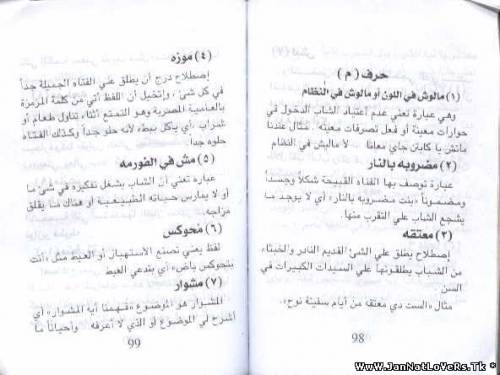 حرف ( م )
(١) مالوش في اللون أو مالوش في النظام
وهي عبارة تعني عدم اعتياد الشاب الدخول في
حوارات معينة أو فعل تصرفات معينة. مثال عندنا
ماتش يا كابتن جاي معانا لا ماليش في النظام
(٢) مضروبه بالنار
عبارة توصف بها الفتاه القبيحة شكلاً وجسداً
ومضموناً «بنت مضروبه بالنار» أي لا يوجد ما
يشجع الشاب علي التقرب منها.
(٣) معتقه
إصطلاح يطلق علي الشئ القديم النادر والخبثاء
من الشباب يطلقونها علي السيدات الكبيرات في
السن.
مثال «الست دي معتقه من أيام سفينة نوح»
98
(٤) موزه
إصطلاح درج أن يطلق علي الفتاه الجميلة جداً
في كل شئ، وإتخيل أن اللفظ أتي من كلمة المزمزة
بالعامية المصرية وهو التمتع أثناء تناول طعام أو
شراب «أي يأكل ببطء لأنه حلو جداً وكذلك الفتاه
حلوه جداً.
(٥) مش في الفورمه
عباره تعني أن الشاب يشغل تفكيره في شئ ما
أو لا يمارس حياته الطبيعية أو هناك ما يقلق
مزاجه.
(٦) مُحوكس
لفظ يعني تصنع الإستهبال أو العبط مش «أنت
بتحوكس ياض» أي بتدعي العبط
(٧) مشوار
المشوار هو الموضوع «فهمنا أيه المشوار» أي
أشرح لي الموضوع أو الذي لا أعرفه وأحياناً ما
99
WwW.JanNatLoVeRs.Tk *